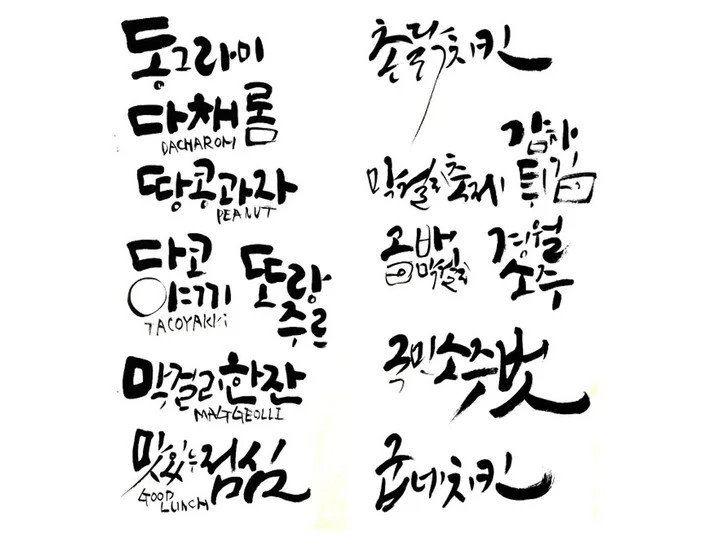 동그라미
다채롬
DACHAROM
땅콩과자
PEANUT
다코
야끼
TACOYAKKI
또랑
주르
막걸리한잔
MAGGEOLLI
맛있는점심
GOOD
LUNCH
촌닭치킨
감자
튀김
막걸리축제
곰배
막걸리
경월
소주
국민소주벗
굽네치킨